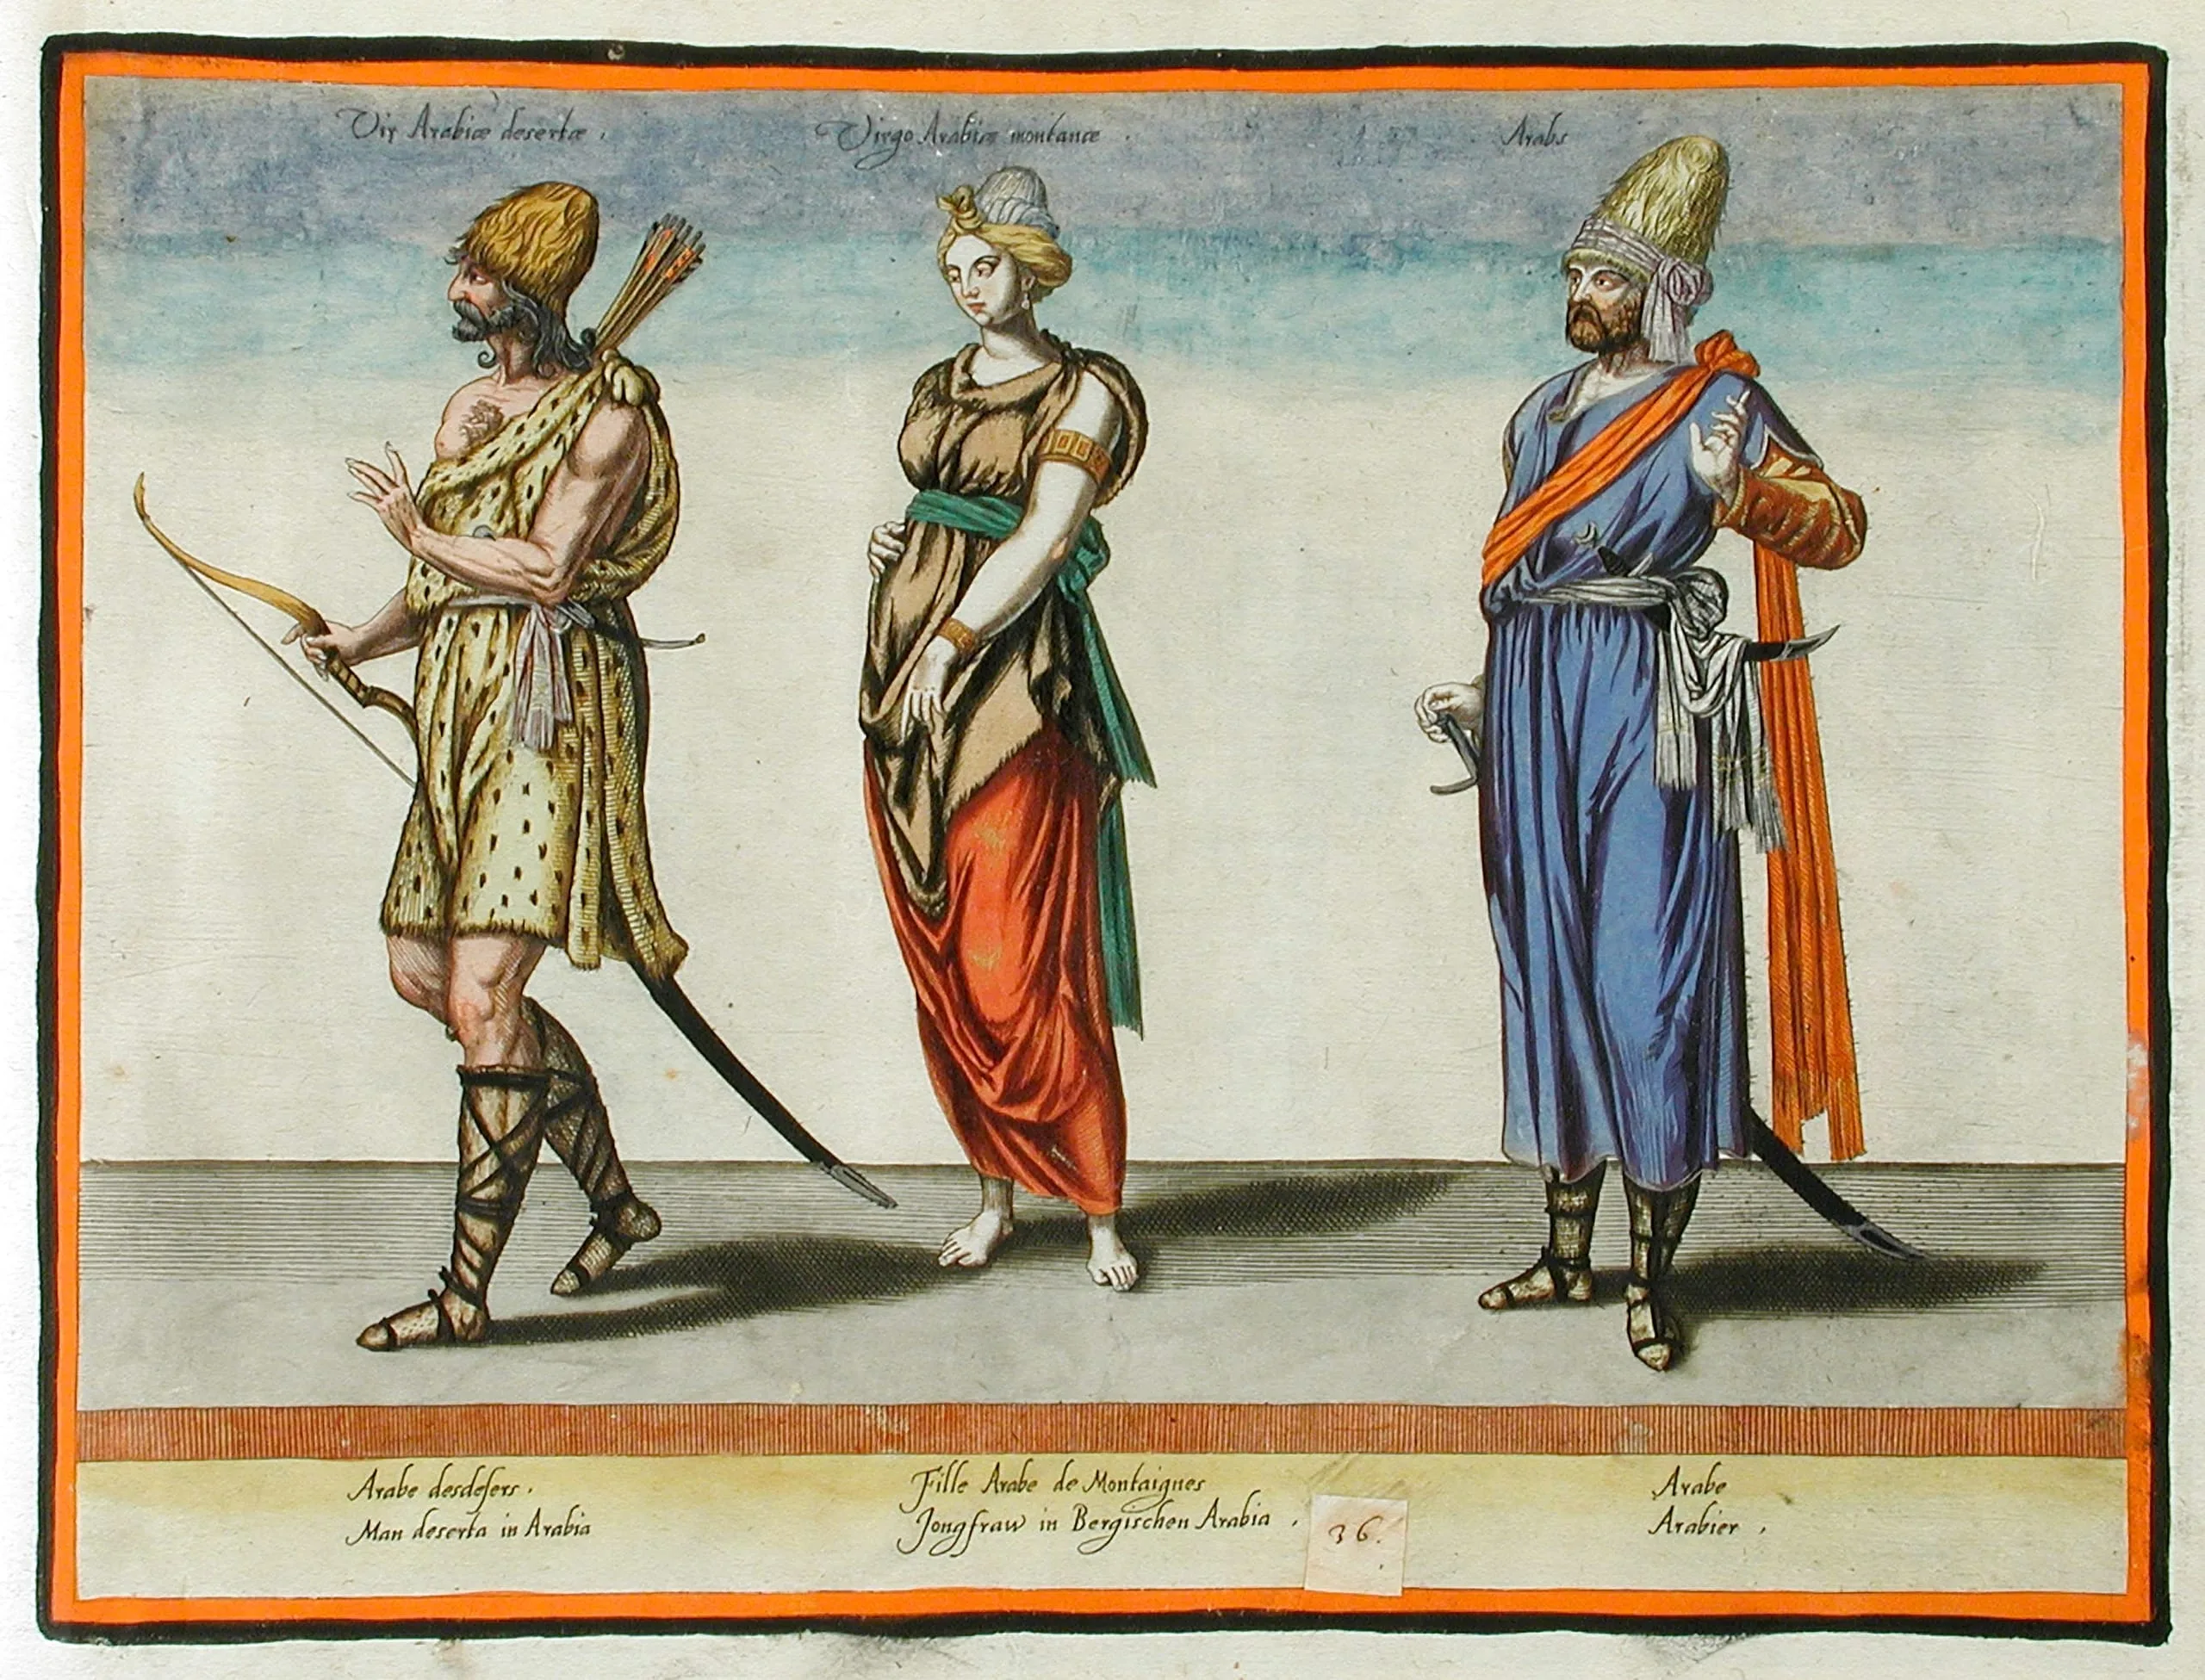 Vir Arabiæ desertæ .
Virgo Arabiæ montanæ .
Arabs
Arabe desdesers .
Man deserta in Arabia
Fille Arabe de Montaignes
Jongfraw in Bergischen Arabia .
36.
Arabe
Arabier .